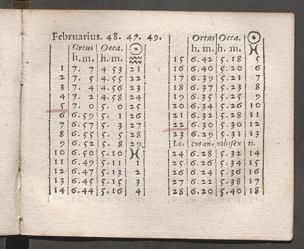 Februarius. 48. 49. 49.
Ortus Occa. ☉
h. m. h. m. ♒
1 7. 7 4 53 21
2 7. 5 4.55 22
3 7. 4 4.56 23
4 7. 2 4.58 24
5 7. 0 5. 0 25
6 6.59 5. 1 26
7 6.57 5. 3 27
8 6.55 5. 5 28
9 6.52 5. 8 29
10 6.50 5.10 ♓
11 6.49 5.11 1
12 6.47 5.13 2
13 6.45 5.15 3
14 6.44 5.16 4
Ortus Occa. ☉
h. m. h. m. ♓
15 6.42 5.18 5
16 6.40 5.20 6
17 6.38 5.22 7
18 6.37 5.23 8
19 6.35 5.25 9
20 6.34 5.26 10
21 6.32 5.28 11
22 6.30 5.30 12
23 6.29 5.31 13
Lo. cus an. mbisex ti.
24 6.28 5.32 14
25 6.26 5.34 15
26 6.24 5.36 16
27 6.22 5.38 17
28 6.20 5.40 18